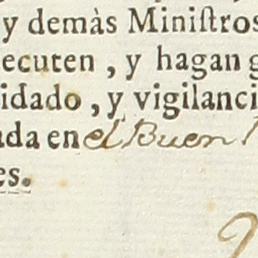 y demàs Miniſtros
ecuten , y hagan g
idado , y vigilanci
ada en el Buen
es.